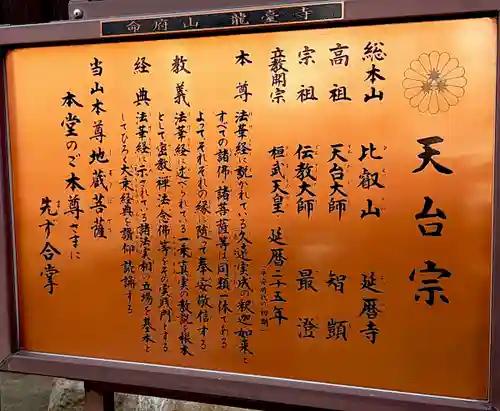 命府山 龍臺寺
天台宗
総本山 比叡山 延暦寺
高祖 天台大師 智顗
宗祖 伝教大師 最澄
立教開宗 桓武天皇 延暦二十五年(平安時代の初期)
本尊 法華経に説かれている久遠実成の釈迦如来と
すべての諸佛・諸菩薩等は同類一体である
よってそれぞれの縁に随って奉安敬信する
教義 法華経に述べられている一乗真実の教説を根本
として密教、禅法、念佛等をその実践門とする
経典 法華経に示されている諸法実相の立場を基本と
してひろく大乗経典を讃仰読誦する
当山本尊地蔵菩薩
本堂のご本尊さまに
先ず合掌